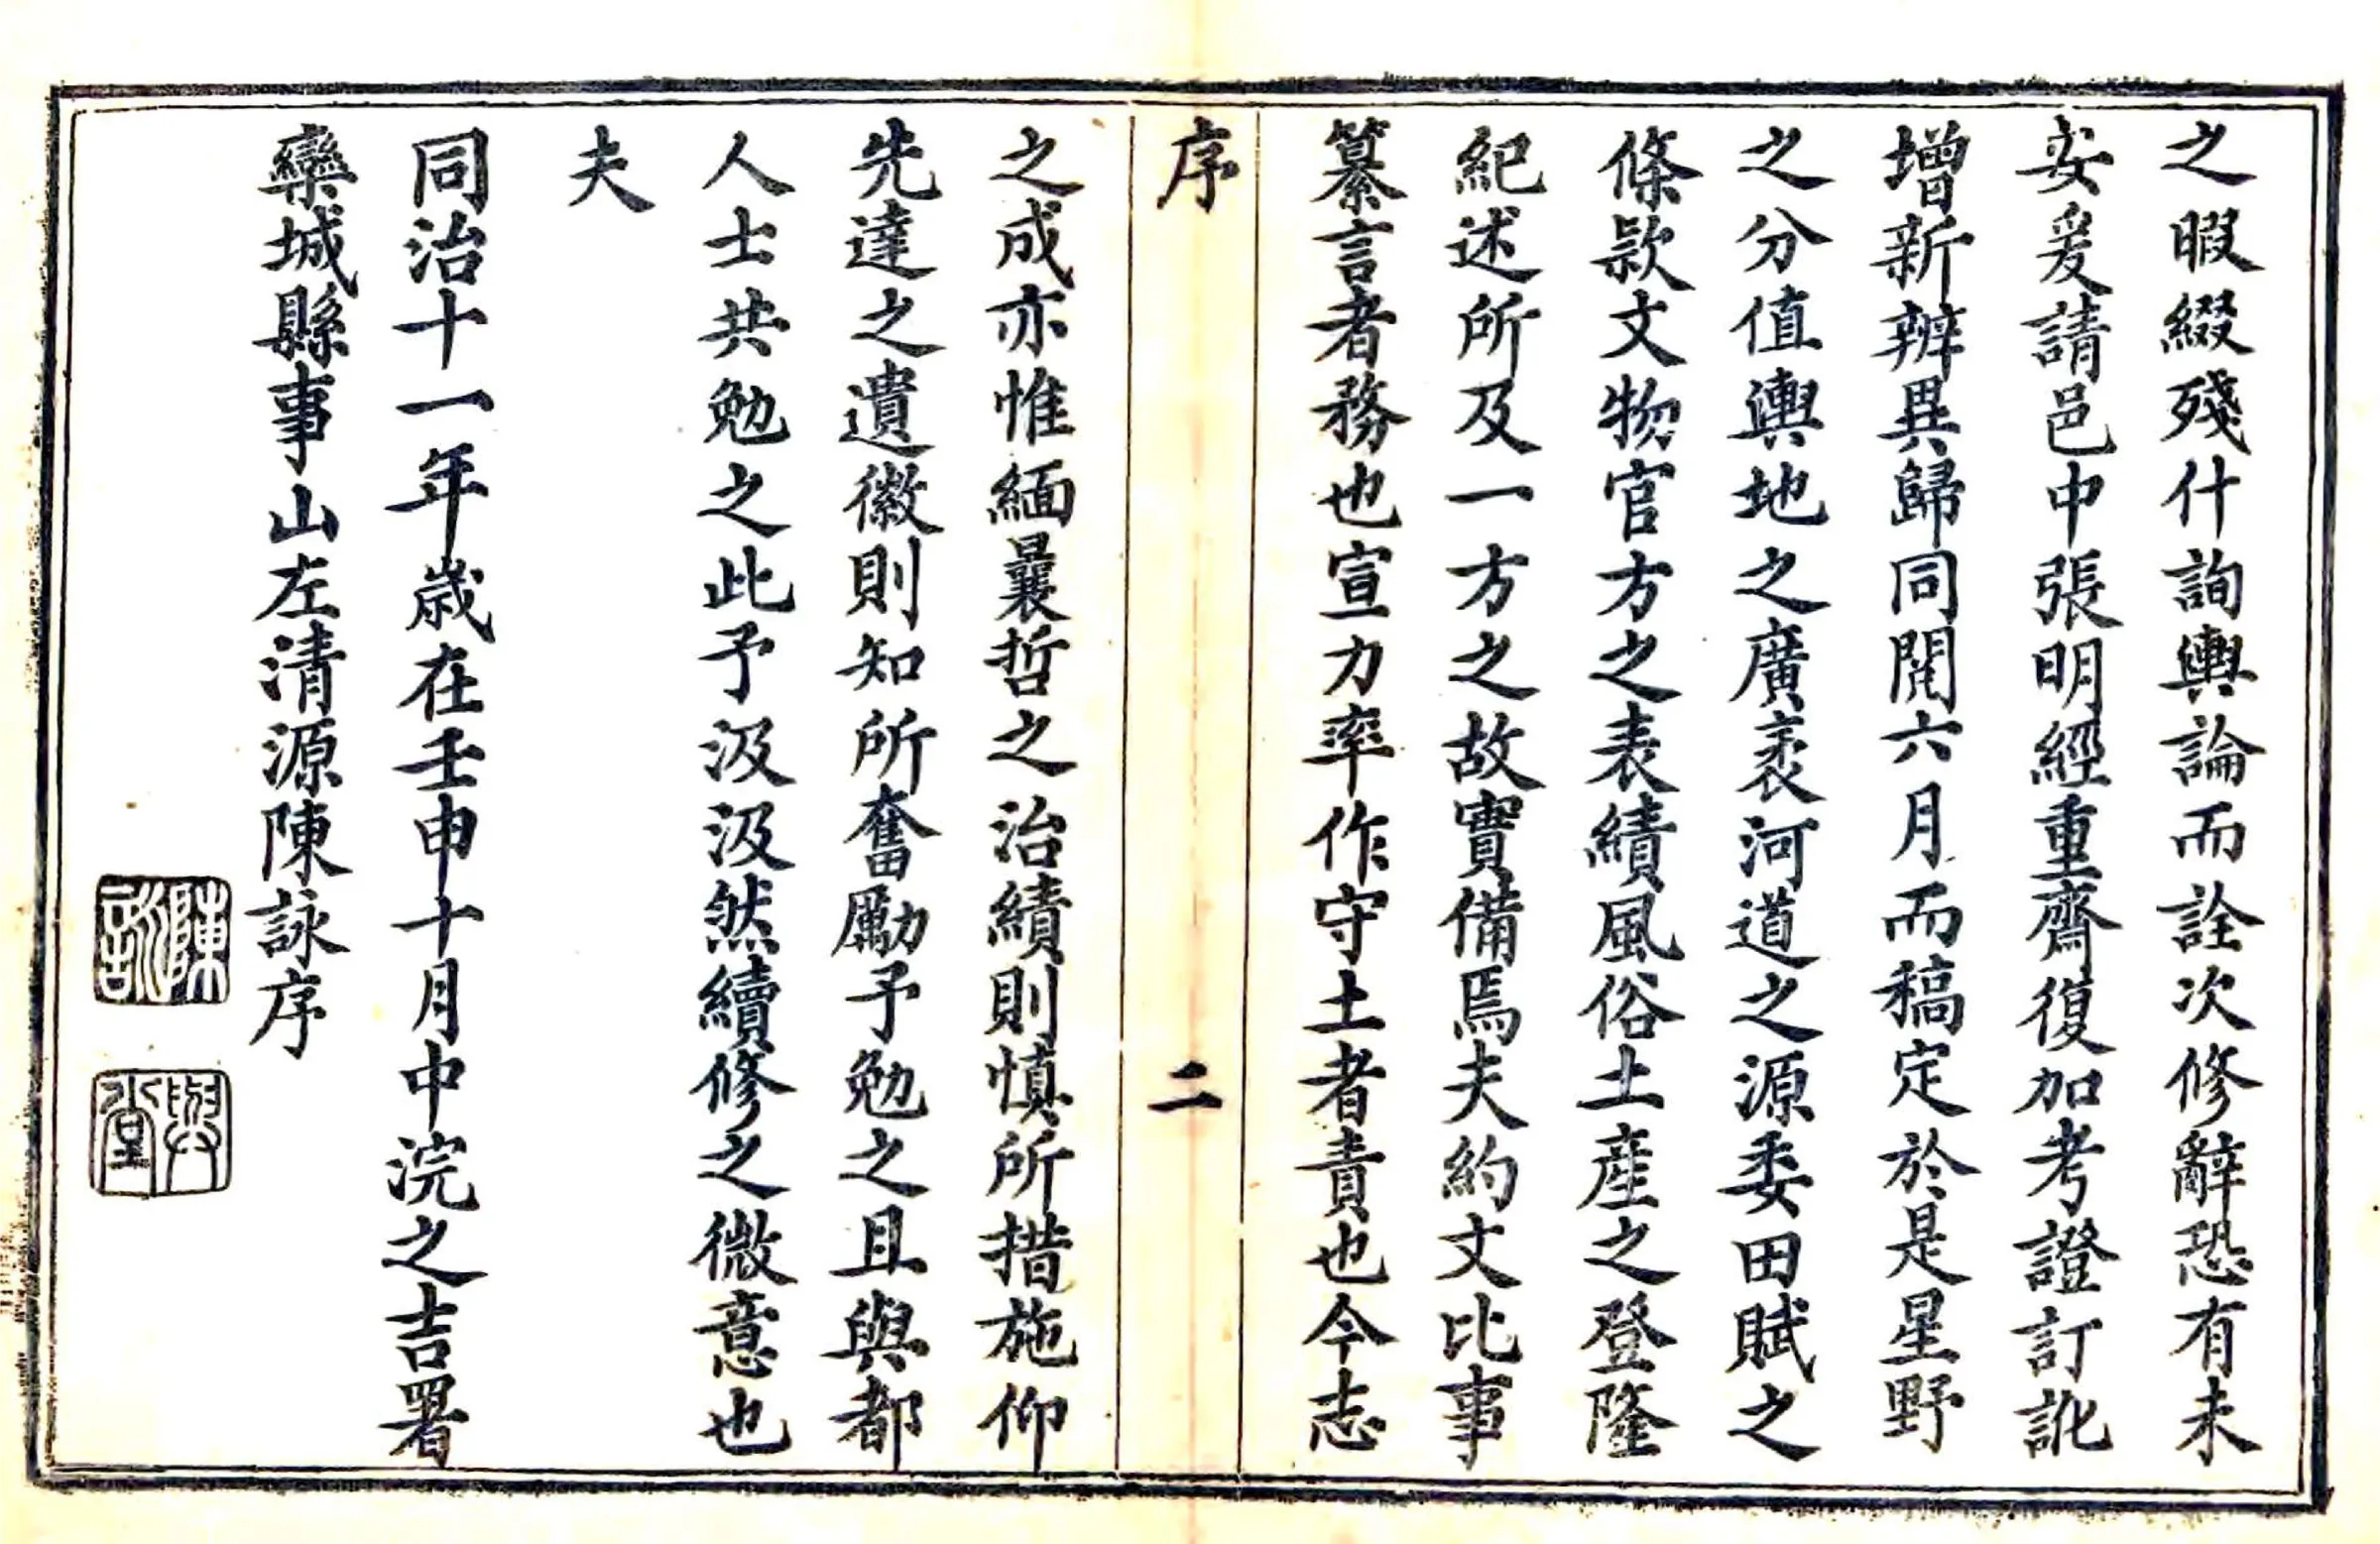 之暇綴殘什詢輿論而詮次修辭恐有未
妥爰請邑中張明經重齋復加考證訂訛
增新辨異歸同閱六月而稿定於是星野
之分值輿地之廣袤河道之源委田賦之
條款文物官方之表績風俗土產之登隆
紀述所及一方之故實備焉夫約文比事
纂言者務也宣力率作守土者責也今志
序
二
之成亦惟緬曩哲之治績則慎所措施仰
先達之遺徽則知所奮勵予勉之且與都
人士共勉之此予汲汲然續修之微意也
夫
同治十一年歲在壬申十月中浣之吉署
欒城縣事山左清源陳詠序
陳詠
興堂